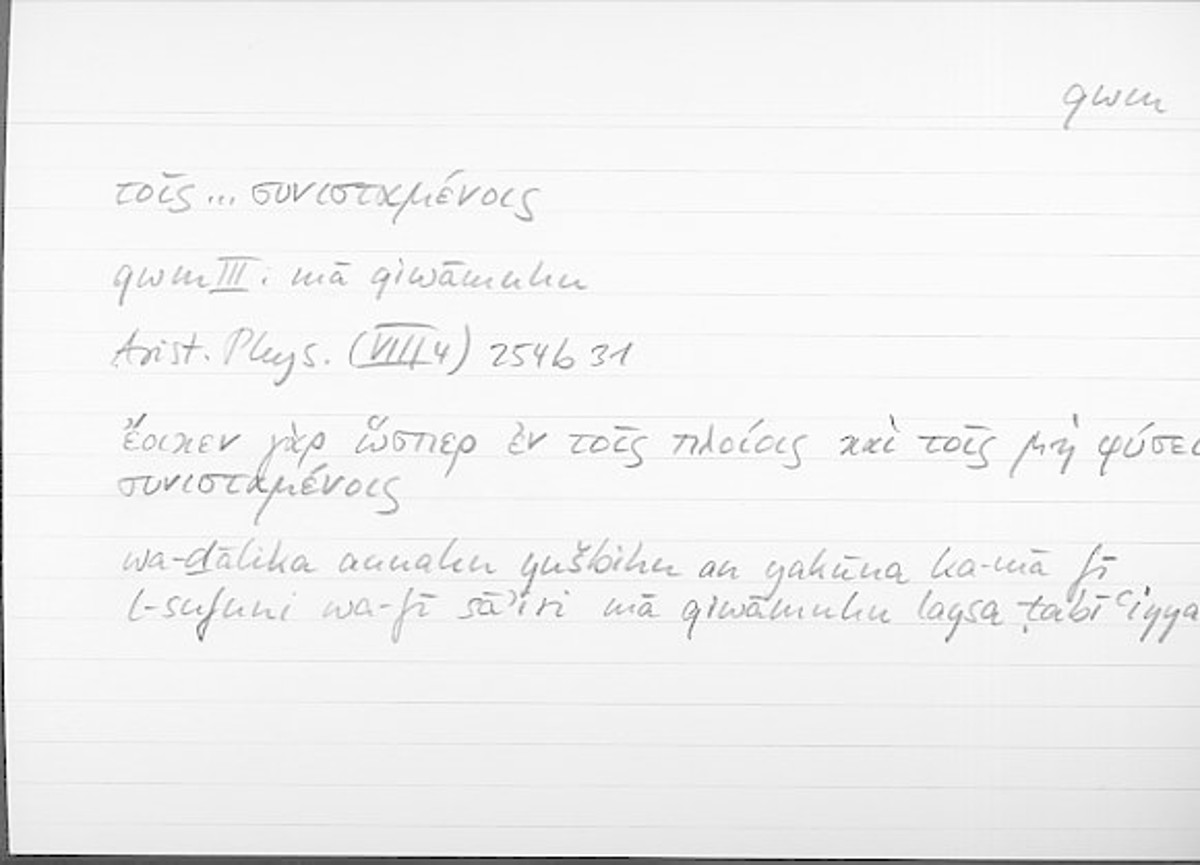 qwm
τοῖς ... συνισταμένοις
qwm III: mā qiwāmuhu
Arist. Phys. (VIII 4) 254b 31
ἔοικεν γὰρ ὥσπερ ἐν τοῖς πλοίοις καὶ τοῖς μὴ φύσει
συνισταμένοις
wa-ḏālika annahu yušbihu an yakūna ka-mā fī
l-sufuni wa-fī sāʾiri mā qiwāmuhu laysa ṭabīʿiyya